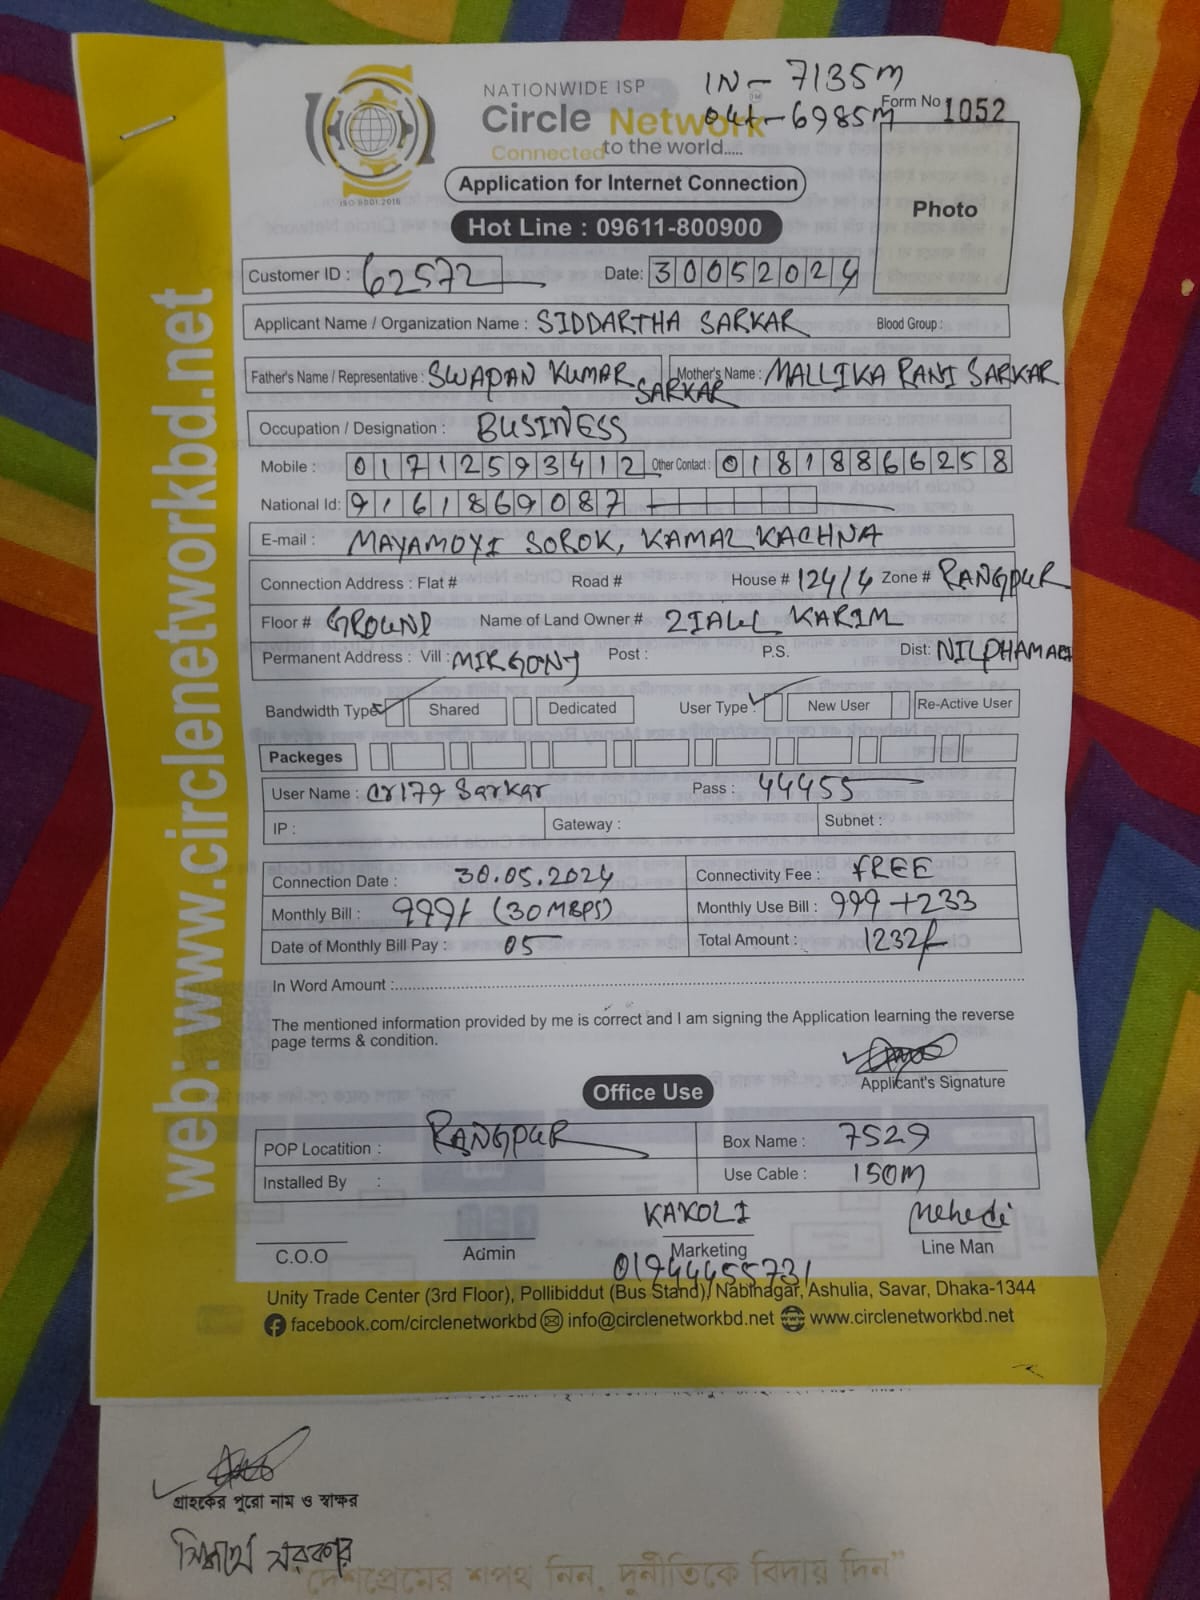 NATIONWIDE ISP
IN - 7135m
Circle Network
Out - 6985m
Form No 1052
Connected to the world.....
ISO 9001:2015
Application for Internet Connection
Photo
Hot Line : 09611-800900
Customer ID : 62572 Date: 30052024
Applicant Name / Organization Name : SIDDARTHA SARKAR Blood Group :
Father's Name / Representative : SWAPAN KUMAR SARKAR Mother's Name : MALLIKA RANI SARKAR
Occupation / Designation : BUSINESS
Mobile : 01712593412 Other Contact : 01818866258
National Id: 9161869087
E-mail : MAYAMOYI SOROK, KAMAL KACHNA
Connection Address : Flat # Road # House # 124/4 Zone # RANGPUR
Floor # GROUND Name of Land Owner # ZIAUL KARIM
Permanent Address : Vill : MIRGONJ Post : P.S. Dist: NILPHAMARI
Bandwidth Type Shared Dedicated User Type : New User Re-Active User
Packeges
User Name : cr179 Sarkar Pass : 44455
IP : Gateway : Subnet :
Connection Date : 30.05.2024 Connectivity Fee : FREE
Monthly Bill : 999/- (30 MBPS) Monthly Use Bill : 999 +233
Date of Monthly Bill Pay : 05 Total Amount : 1232/-
In Word Amount :
The mentioned information provided by me is correct and I am signing the Application learning the reverse
page terms & condition.
Applicant's Signature
Office Use
POP Locatition : RANGPUR Box Name : 7529
Installed By : Use Cable : 150M
KAKOLI Mehedi
C.O.O Admin Marketing Line Man
01944455731
Unity Trade Center (3rd Floor), Pollibiddut (Bus Stand), Nabinagar, Ashulia, Savar, Dhaka-1344
facebook.com/circlenetworkbd info@circlenetworkbd.net www.circlenetworkbd.net
web: www.circlenetworkbd.net
গ্রাহকের পুরো নাম ও স্বাক্ষর
সিদ্ধার্থ সরকার
দেশপ্রেমের শপথ নিন, দুর্নীতিকে বিদায় দিন”